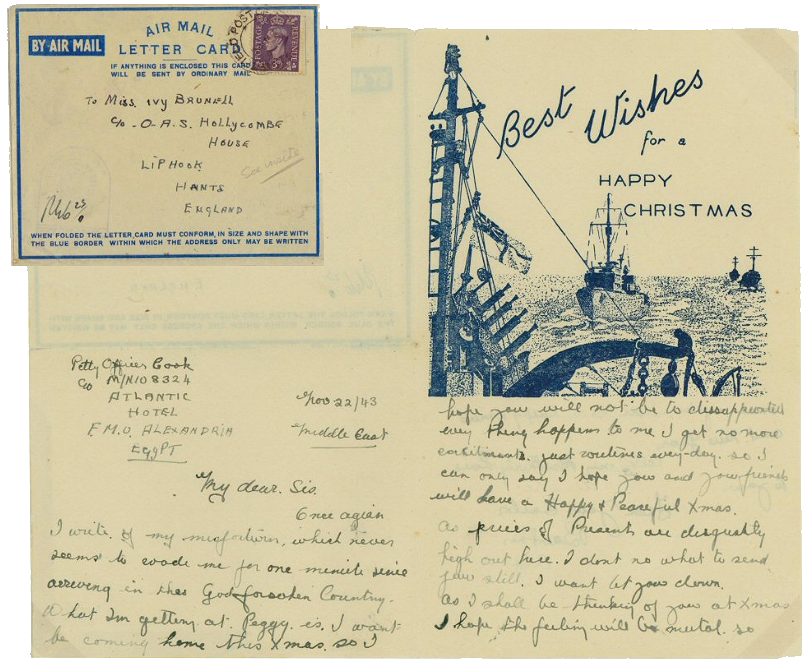 AIR MAIL
BY AIR MAIL
LETTER CARD
IF ANYTHING IS ENCLOSED THIS CARD
WILL BE SENT BY ORDINARY MAIL
POSTAGE
REVENUE
To Miss. IVY BRUNELL
c/o - O-A-S. HOLLYCOMBE
HOUSE
LIPHOOK
HANTS
ENGLAND
See inside
WHEN FOLDED THE LETTER CARD MUST CONFORM IN SIZE AND SHAPE WITH
THE BLUE BORDER WITHIN WHICH THE ADDRESS ONLY MAY BE WRITTEN
Best Wishes
for a
HAPPY
CHRISTMAS
Petty Officer Cook
c/o M/N108324
ATLANTIC
HOTEL
F.M.O. ALEXANDRIA
EGYPT
Nov 22/43
Middle East
My dear. Sis.
Once agian
I write. of my misfortiurn, which never
seems to evade me for one miniite sinie
arreving in thes God forsaken Country.
What I'm getting at. Peggy. is. I want
be coming home this Xmas. so I
hope you will not be to dissappointed
every thing happens to me I get no more
excitments. just routines every-day. so I
can only say I hope you and your friends
will have a Happy & Peaceful Xmas.
as prices of Presents are disgustly
high out here. I dont no what to send
you still. I want let you down.
as I shall be thinking of you at Xmas
I hope the feeling will be mutal. so